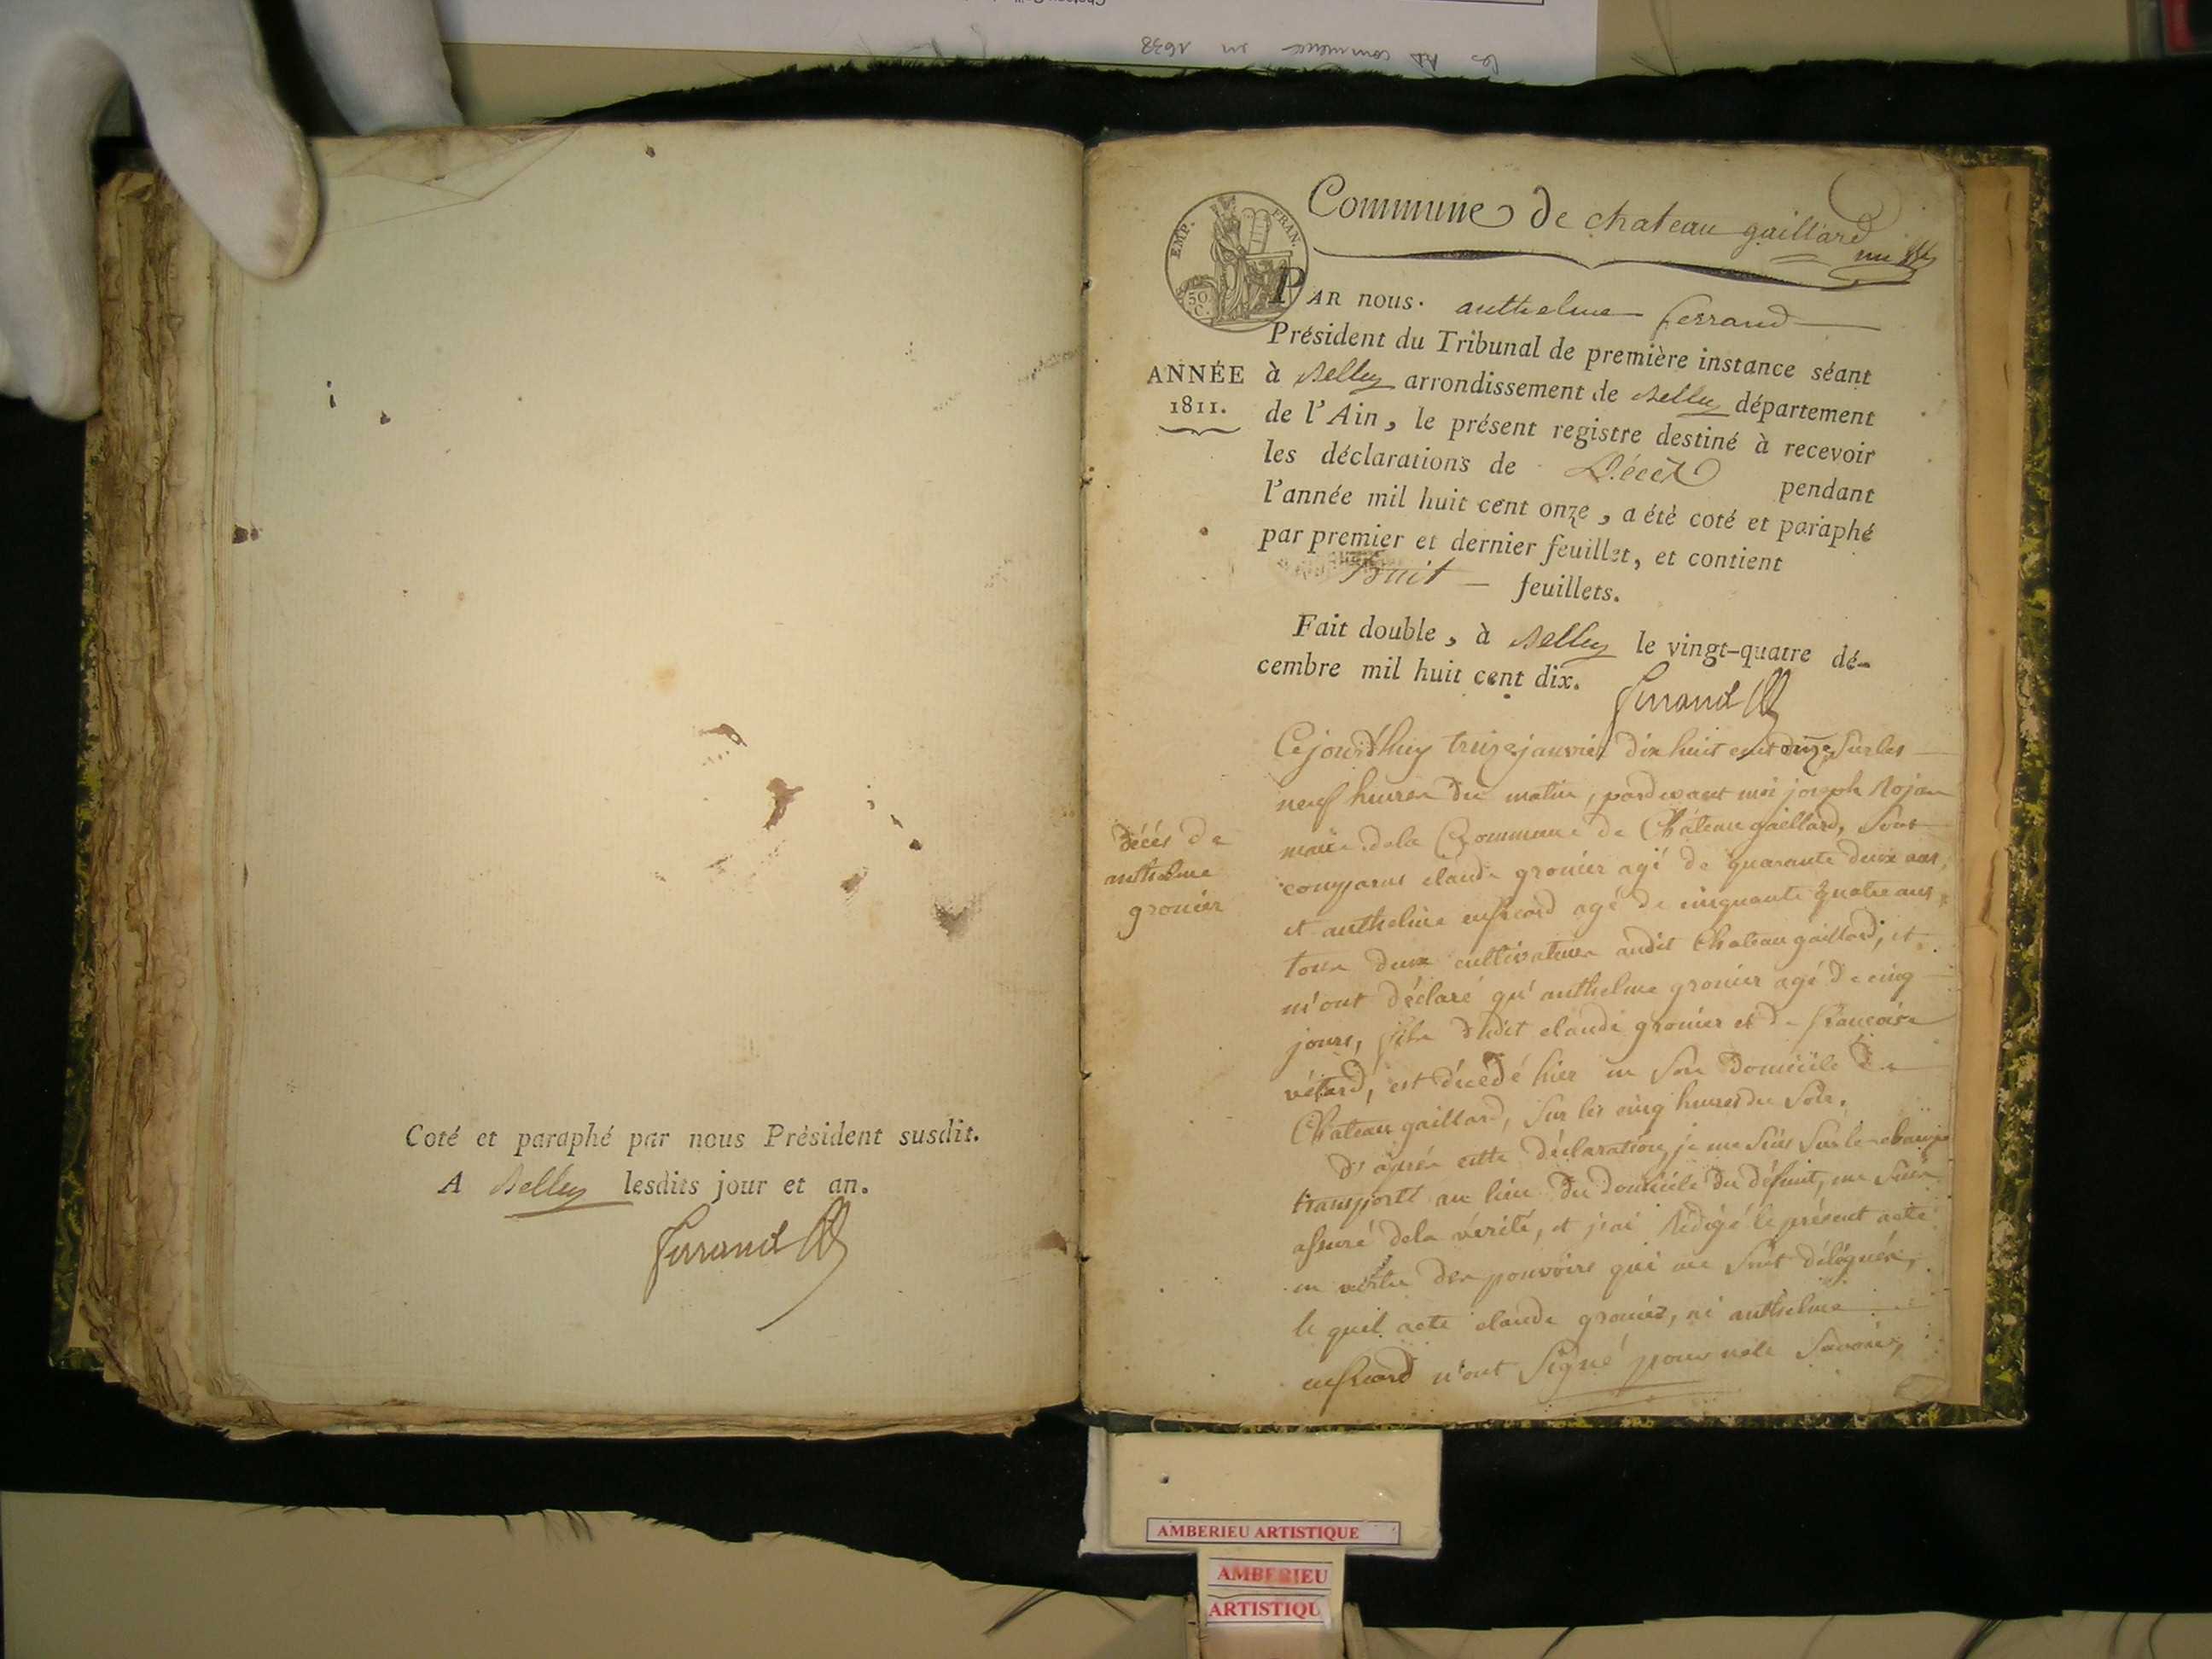 les AD commence en 1638
Coté et paraphé par nous Président susdit.
A Belley lesdits jour et an.
Ferrand
Commune de chateau gaillard
EMP. FRAN.
50 C.
PAR nous. anthelme ferrand
Président du Tribunal de première instance séant
ANNÉE
1811.
à Belley arrondissement de Belley département
de l'Ain, le présent registre destiné à recevoir
les déclarations de Décès pendant
l'année mil huit cent onze, a été coté et paraphé
par premier et dernier feuillet, et contient
huit feuillets.
Fait double, à Belley le vingt-quatre dé-
cembre mil huit cent dix.
Ferrand
décés de
anthelme
gronier
Cejourdhuy treize janvier dix huit cent onze, sur les
neuf heures du matin, pardevant moi joseph Rojan
maire dela Commune de Château gaillard, sont
comparus claude gronier agé de quarante deux ans,
et anthelme cuficard agé de cinquante quatre ans,
tous deux cultivateurs audit Chateau gaillard, et
m'ont déclaré qu'anthelme gronier agé de cinq
jours, fils dudit claude gronier et de françoise
vétard, est décédé hier en son domicile de
Château gaillard, sur les cinq heures du soir.
d'aprés cette déclaration je me suis sur le champ
transporté au lieu du domicile du défunt, me suis
assuré dela vérité, et j'ai rédigé le présent acte
en vertu des pouvoirs qui me sont délégués,
le quel acte claude gronier, ni anthelme
cuficard n'ont signé pour ne le savoir,
AMBERIEU ARTISTIQUE
AMBERIEU
ARTISTIQU